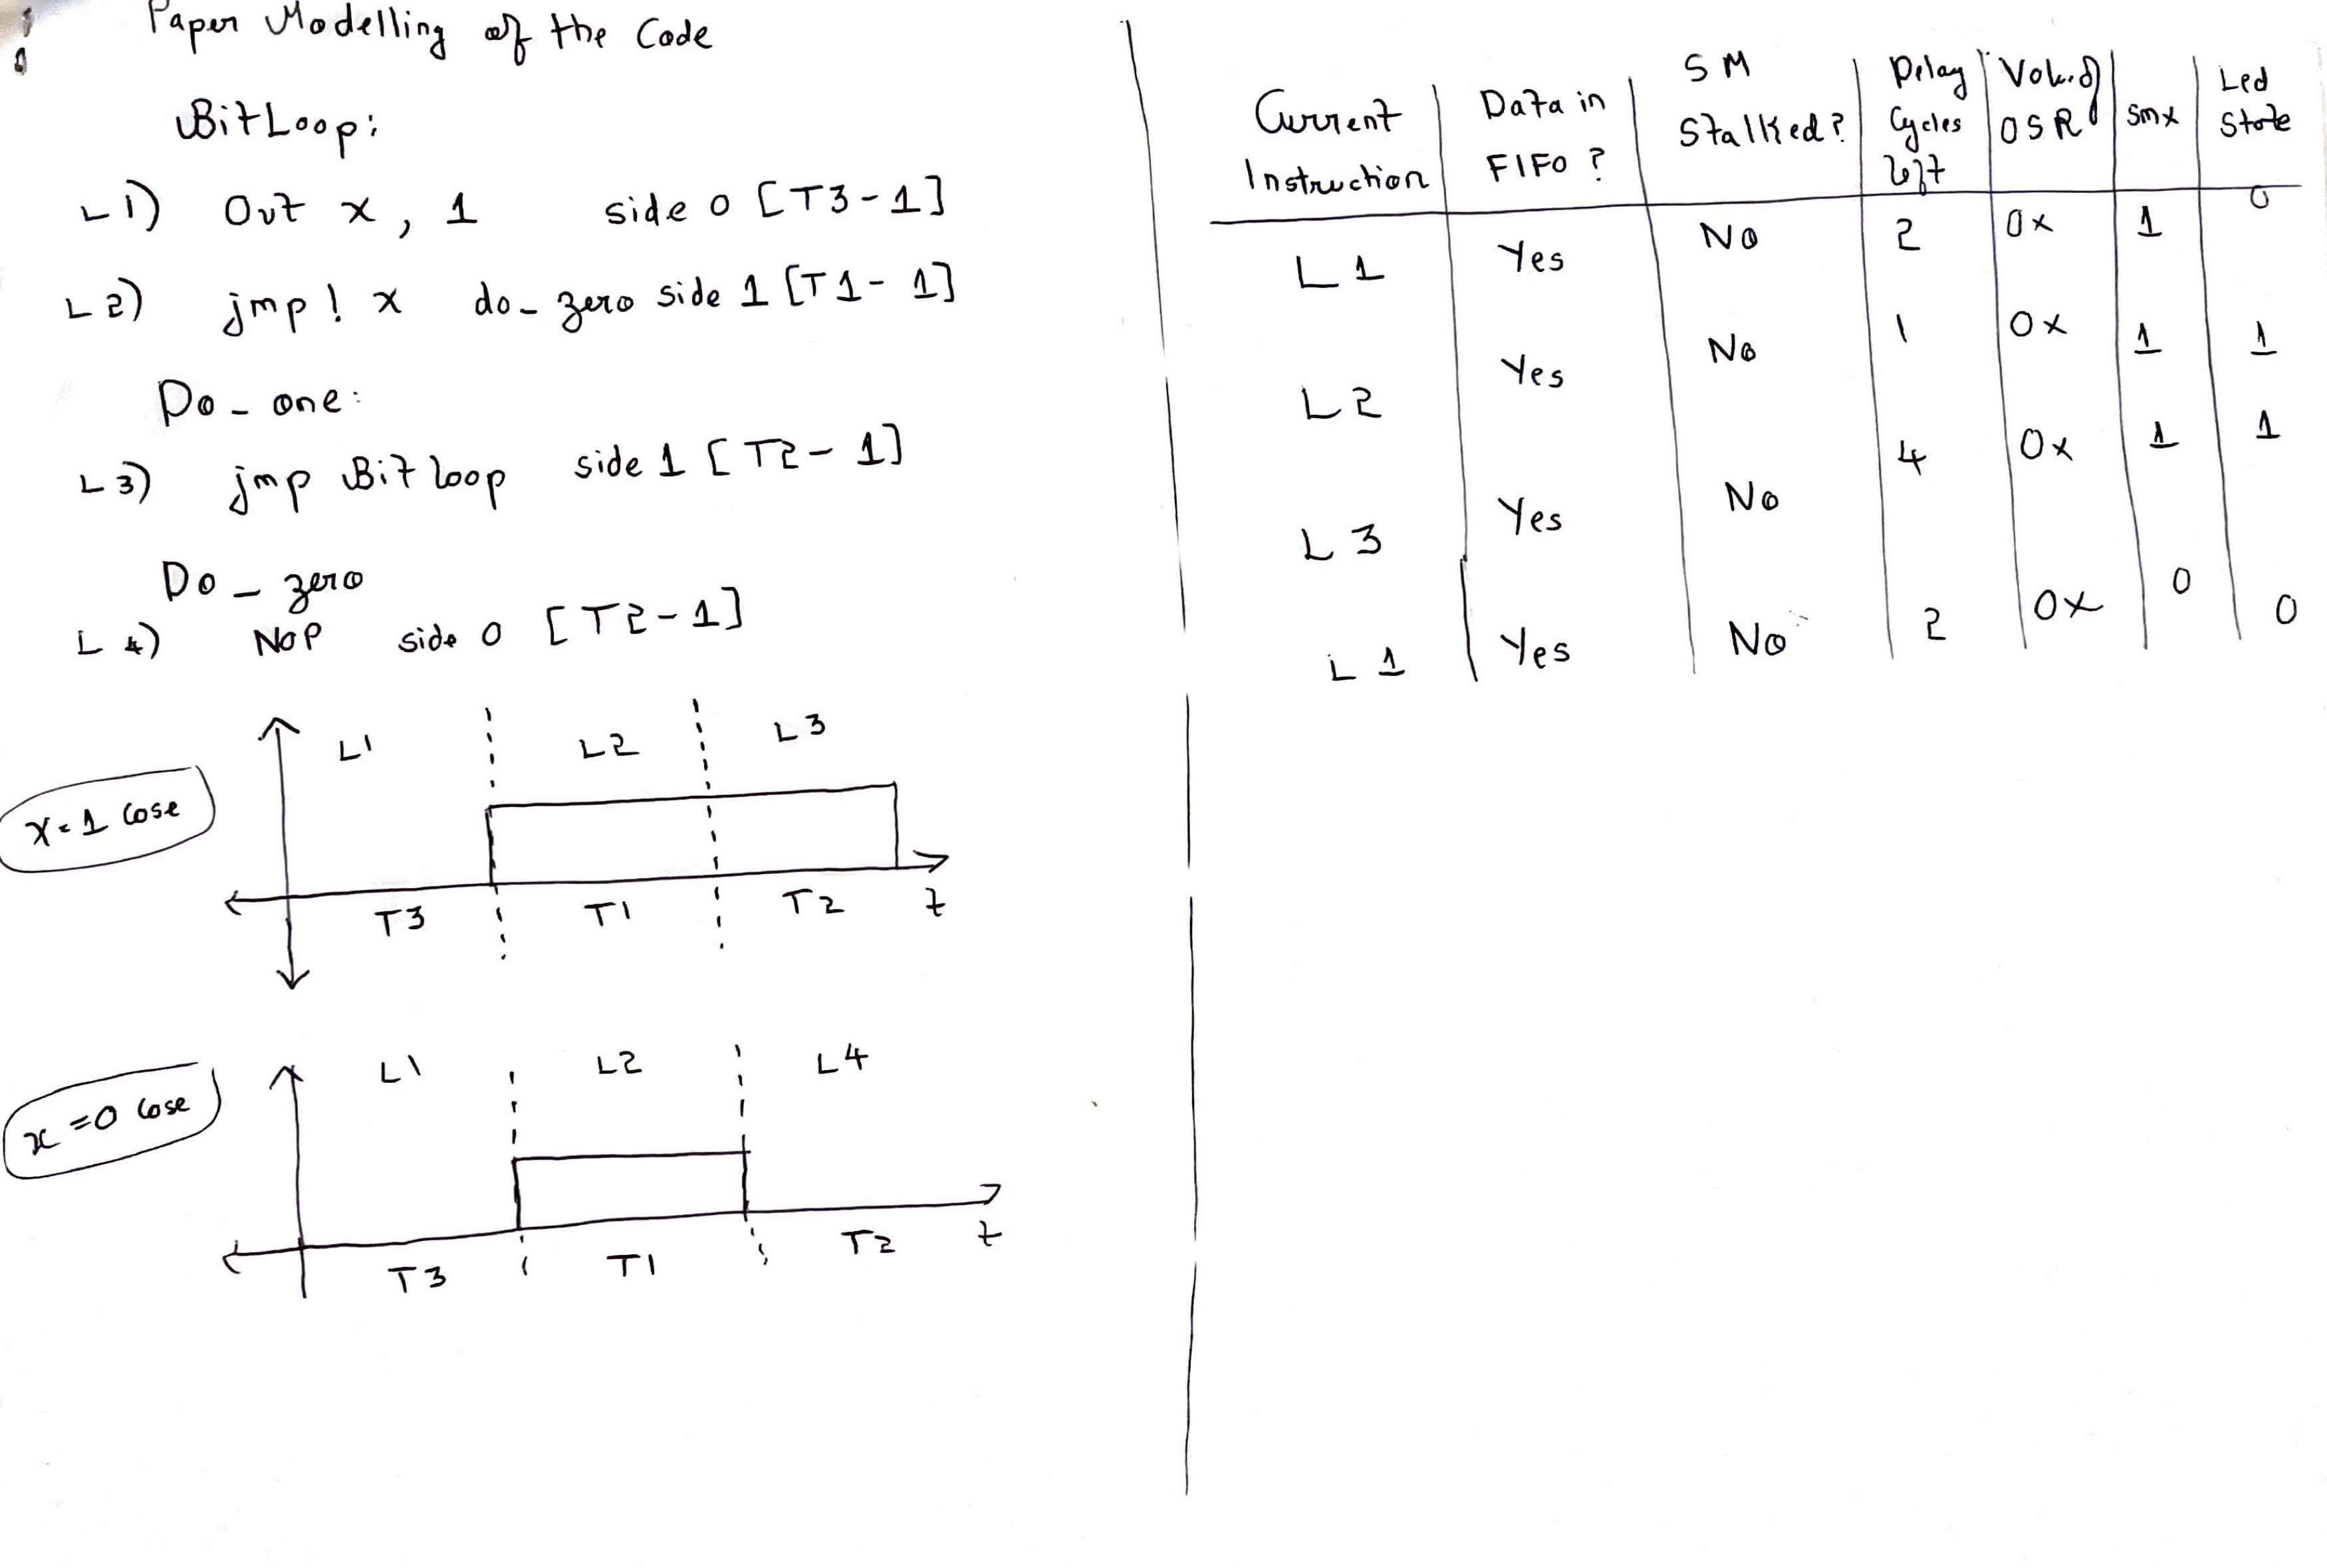 Paper Modelling of the Code
BitLoop:
L1) Out x, 1 side 0 [T3-1]
L2) jmp! x do_zero side 1 [T1-1]
Do_one:
L3) jmp Bitloop side 1 [T2-1]
Do_zero
L4) NOP side 0 [T2-1]
x=1 Case
L1 L2 L3
T3 T1 T2 t
x=0 Case
L1 L2 L4
T3 T1 T2 t
Current Instruction
Data in FIFO ?
SM Stalled ?
Delay Cycles left
OSR
smx
Led State
L1 Yes No 2 0x 1 0
L2 Yes No 1 0x 1 1
L3 Yes No 4 0x 1 1
L1 Yes No 2 0x 0 0